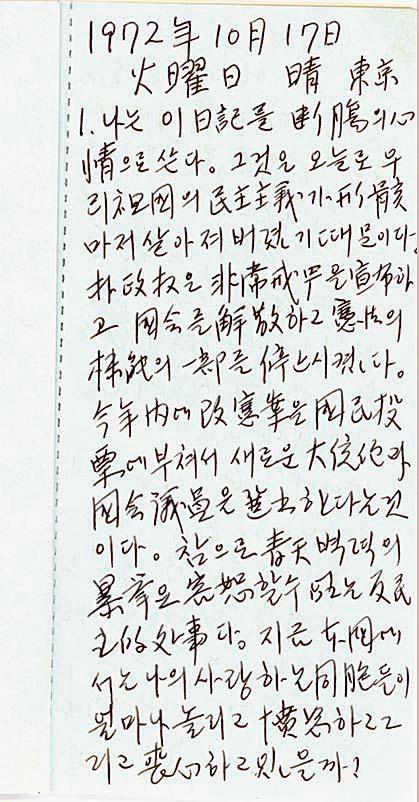 1972年 10月 17日
火曜日 晴 東京
1. 나는 이 日記를 断腸의 心
情으로 쓴다. 그것은 오늘로 우
리 祖國의 民主主義가 形骸
마저 살아져 버렸기 때문이다.
朴政权은 非常戒严을 宣布하
고 国会를 解散하고 憲法의
機能의 一部를 停止시켰다.
今年内에 改憲案을 国民投
票에 부쳐서 새로운 大統領과
国会議員을 選出한다는 것
이다. 참으로 青天벽력의
暴挙요 容恕할 수 없는 反民
主的 处事다. 지금 本国에
서는 나의 사랑하는 同胞들이
얼마나 놀라고 憤怒하고 그
리고 喪心하고 있을까?